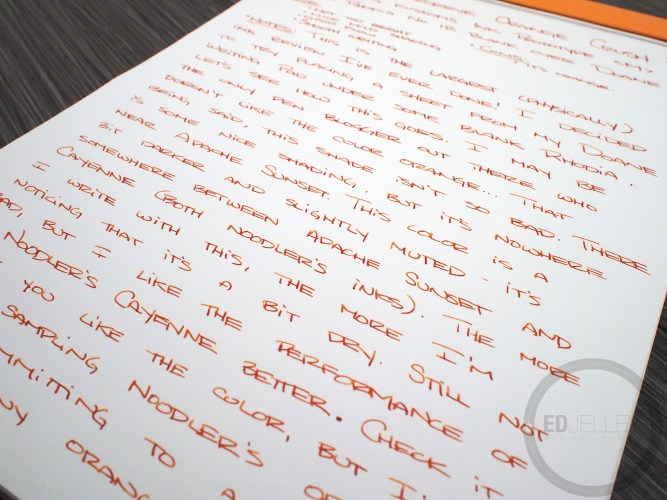 Orange Crush
Ink Prototype
Rhodia No 18 Blank over Doane
Not too bright
shading
• Smooth writing
Cons:
It's orange.
• Notes: This is the largest (physically)
ink review I've ever done! I decided
to try placing a sheet from my Doane
writing pad under some blank Rhodia.
Let's see how this goes. I may be
the only pen blogger out there who
doesn't like the color orange... That
being said, this shade isn't so bad. There
is some nice shading, but it's nowhere
near Apache Sunset. This color is a
bit darker and slightly muted - it's
somewhere between Apache Sunset and
Cayenne (both Noodler's inks). The more
I write with this, the more I'm
noticing that it's a bit dry. Still not
bad, but I like the performance of
Noodler's Cayenne better. Check it
you like the color, but
sampling Noodler's
to a
EDJELLEY